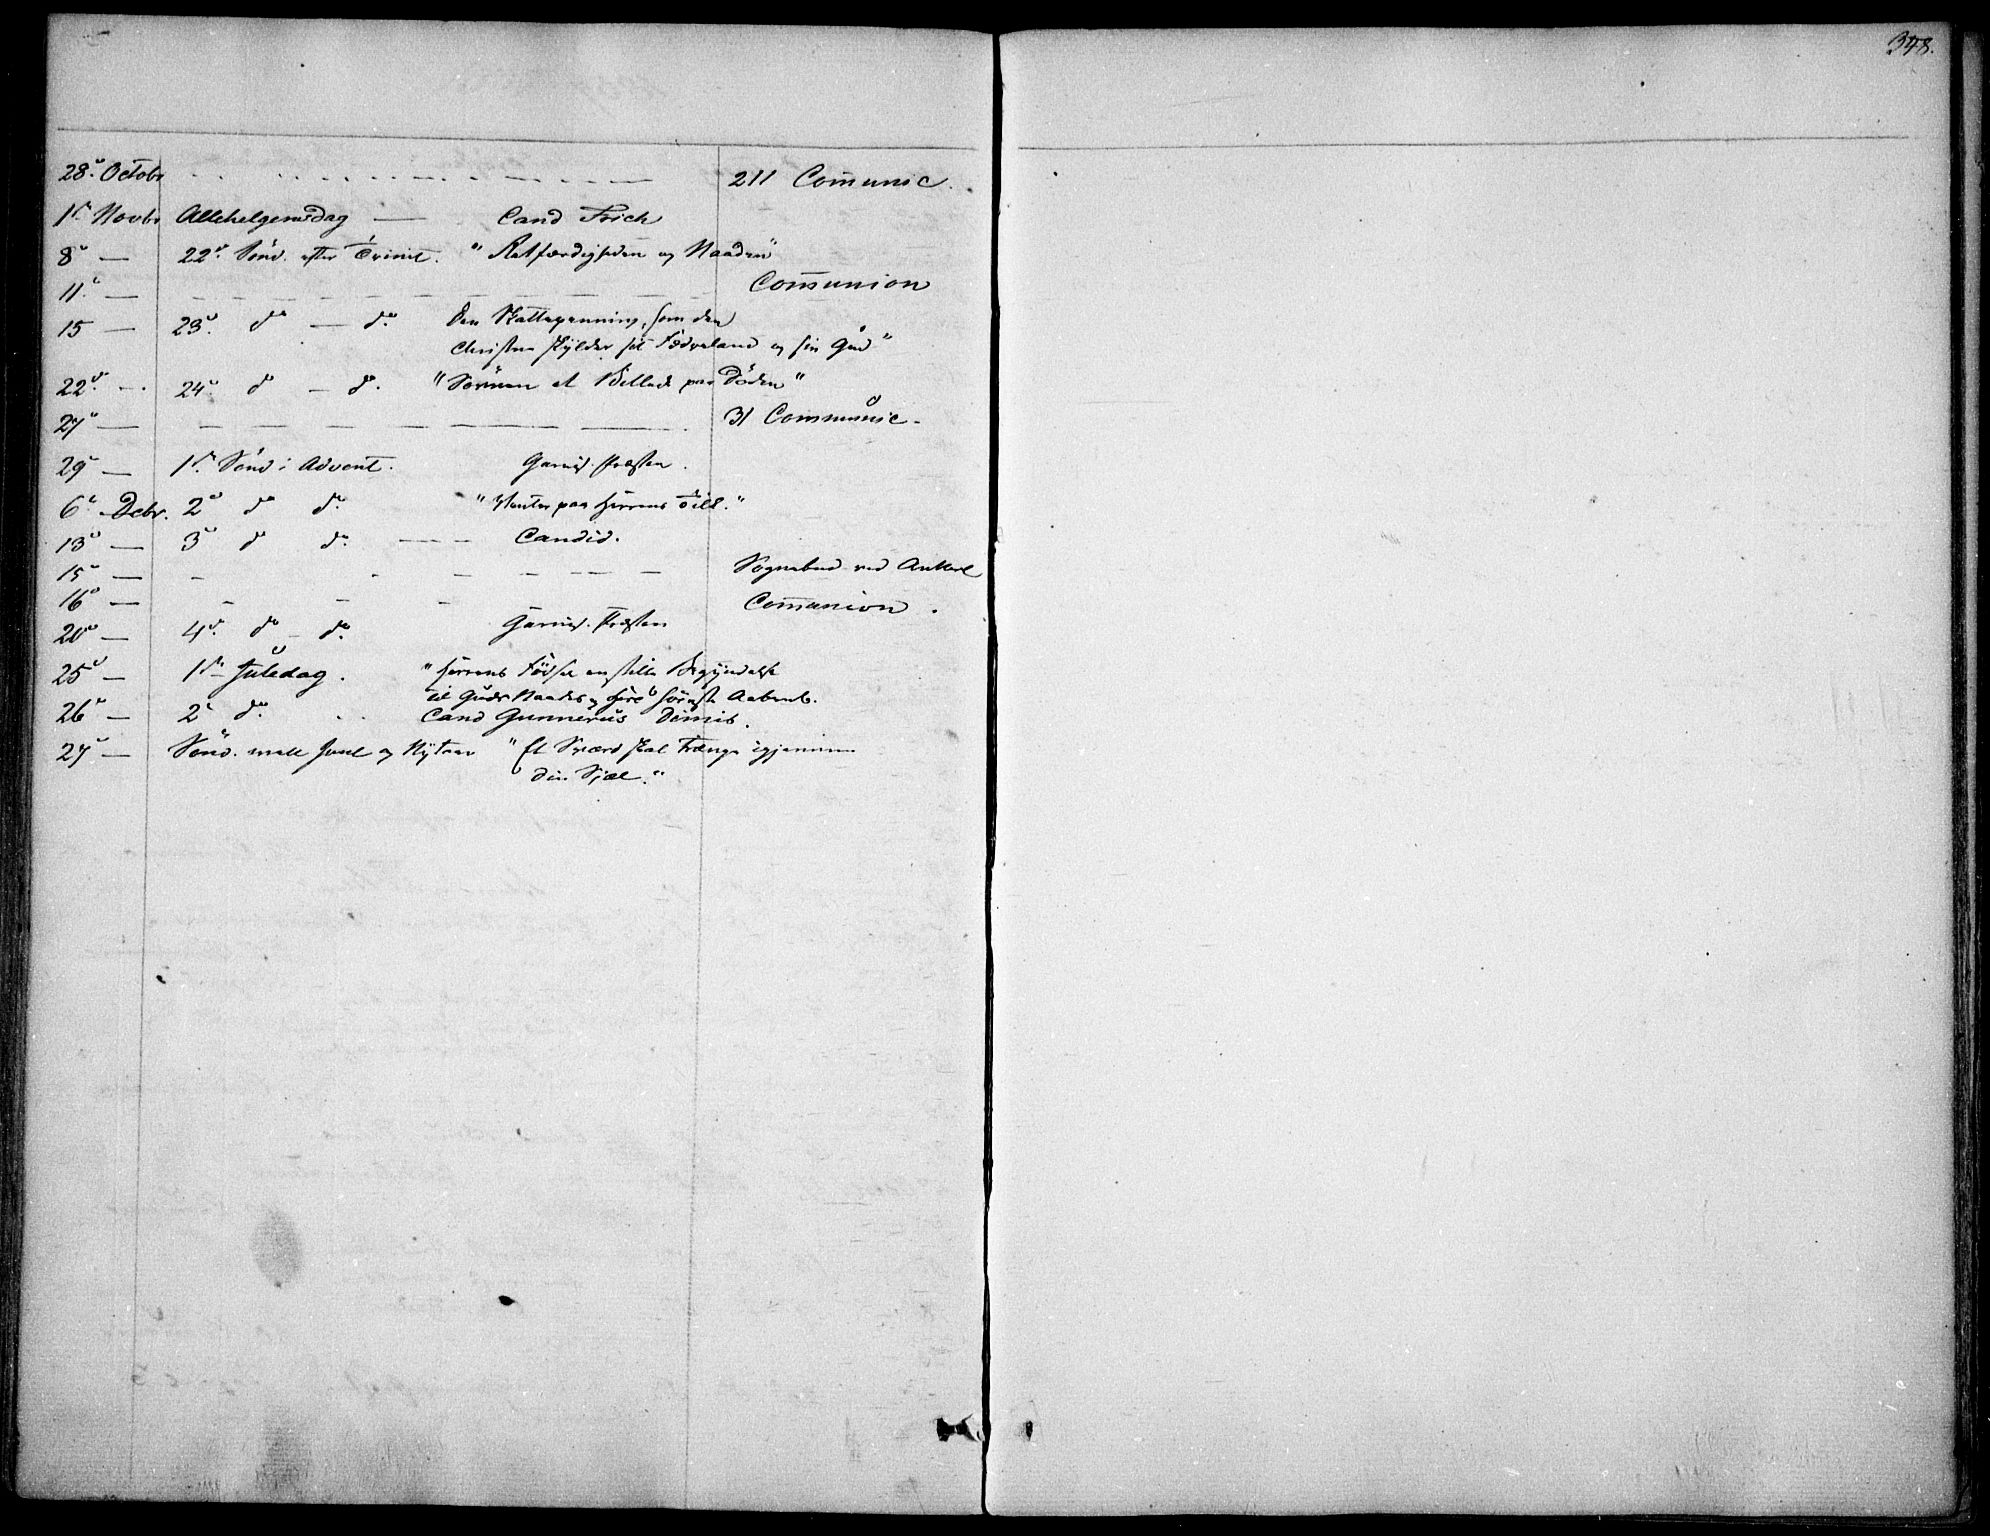 348.
28. Octobr 211 Communic.
1ste Novbr Allehelgensdag — Cand Frich
8 — 22. Sönd. efter Trinit. "Retfærdigheden og Naaden"
11. — Communion
15 — 23. do — do. Den Skattepenning, som den
Christne skylder sit Fædreland og sin Gud"
22. — 24. do — do. "Sövnen et Billede paa Döden"
27 — 31 Communic.
29 — 1ste Sönd i Advent. Garnis. Præsten.
6. Debr. 2 do do. "Venter paa Herrens Tid."
13 — 3 do do. — Candid.
15 — Sognebud ved Ankerl
16 — Communion.
20 — 4. do — do. Garnis. Præsten
25 — 1ste Juledag. "Herrens Födsel en stille Begyndelse
til Guds Naades og
26 — 2 do. Cand Gunnerus Dimis.
27 — Sönd. mell Juul og Nytaar "Et Sværd skal trænge igjennem
din Sjæl."